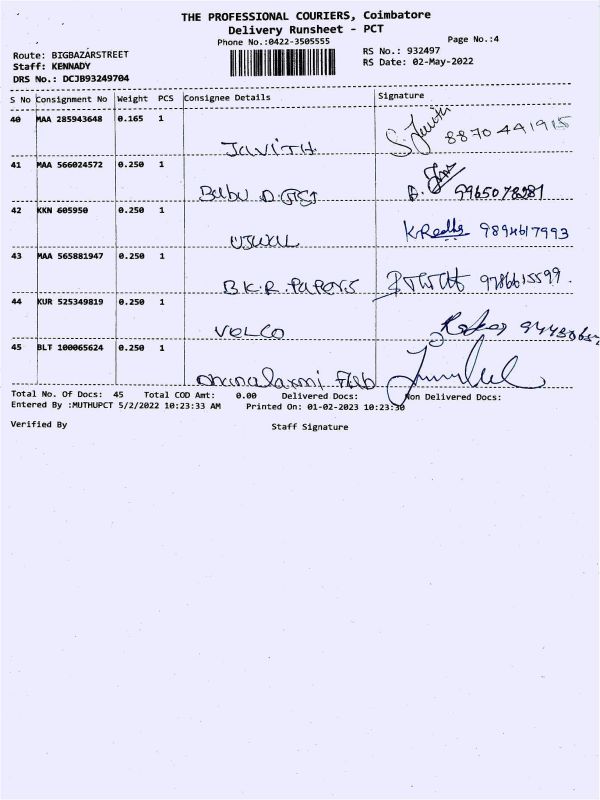 THE PROFESSIONAL COURIERS, Coimbatore
Delivery Runsheet - PCT
Phone No.:0422-3505555
Page No.:4
Route: BIGBAZARSTREET
RS No.: 932497
Staff: KENNADY
RS Date: 02-May-2022
DRS No.: DCJB93249704
S No Consignment No Weight PCS Consignee Details Signature
40 MAA 285943648 0.165 1
JAVITH. S. Javith 8870441915
41 MAA 566024572 0.250 1
Babu D.
42 KKN 605950 0.250 1
UJWAL 9894617993
43 MAA 565881947 0.250 1
B.K.R. Papers 9786615599.
44 KUR 525349819 0.250 1
VELCO
45 BLT 100065624 0.250 1
Dhanalaxmi Fab
Total No. Of Docs: 45 Total COD Amt: 0.00 Delivered Docs: Non Delivered Docs:
Entered By :MUTHUPCT 5/2/2022 10:23:33 AM Printed On: 01-02-2023 10:23:30
Verified By Staff Signature